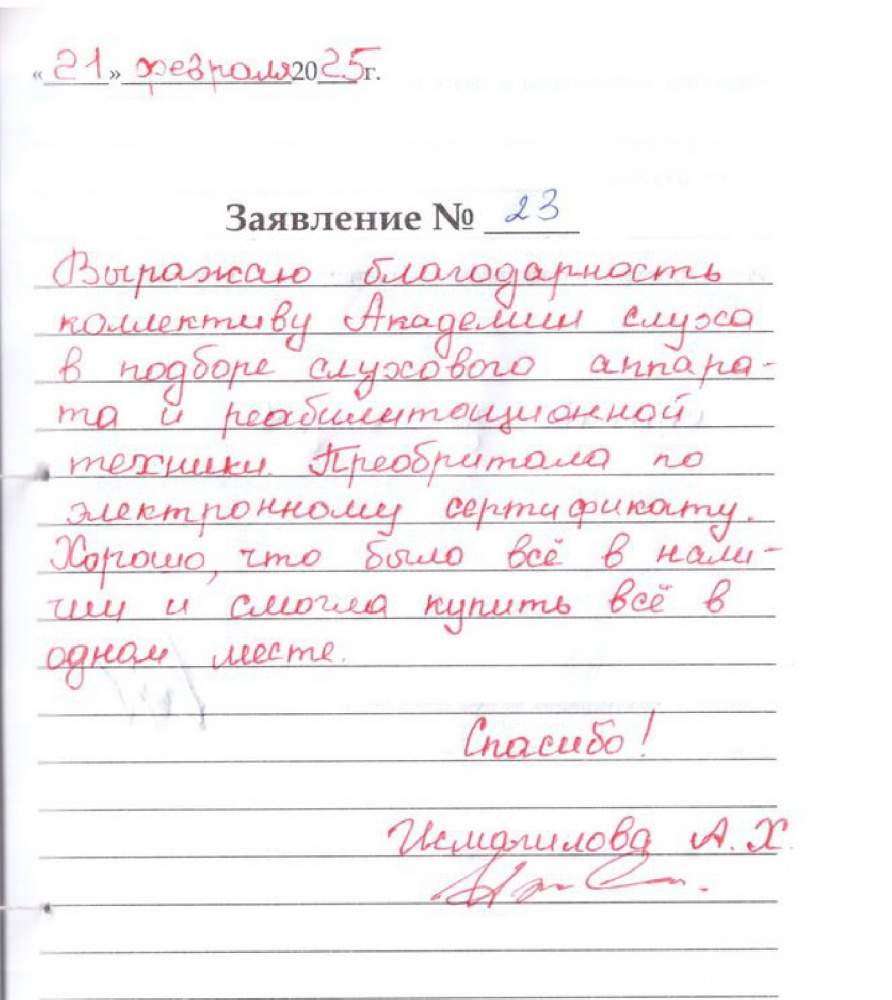 « 21 » февраля 2025 г.
Заявление № 23
Выражаю благодарность
коллективу Академии слуха
в подборе слухового аппара-
та и реабилитационной
техники. Преобритала по
электронному сертификату.
Хорошо, что было всё в нали-
чии и смогла купить всё в
одном месте.
Спасибо!
Исмагилова А.Х.